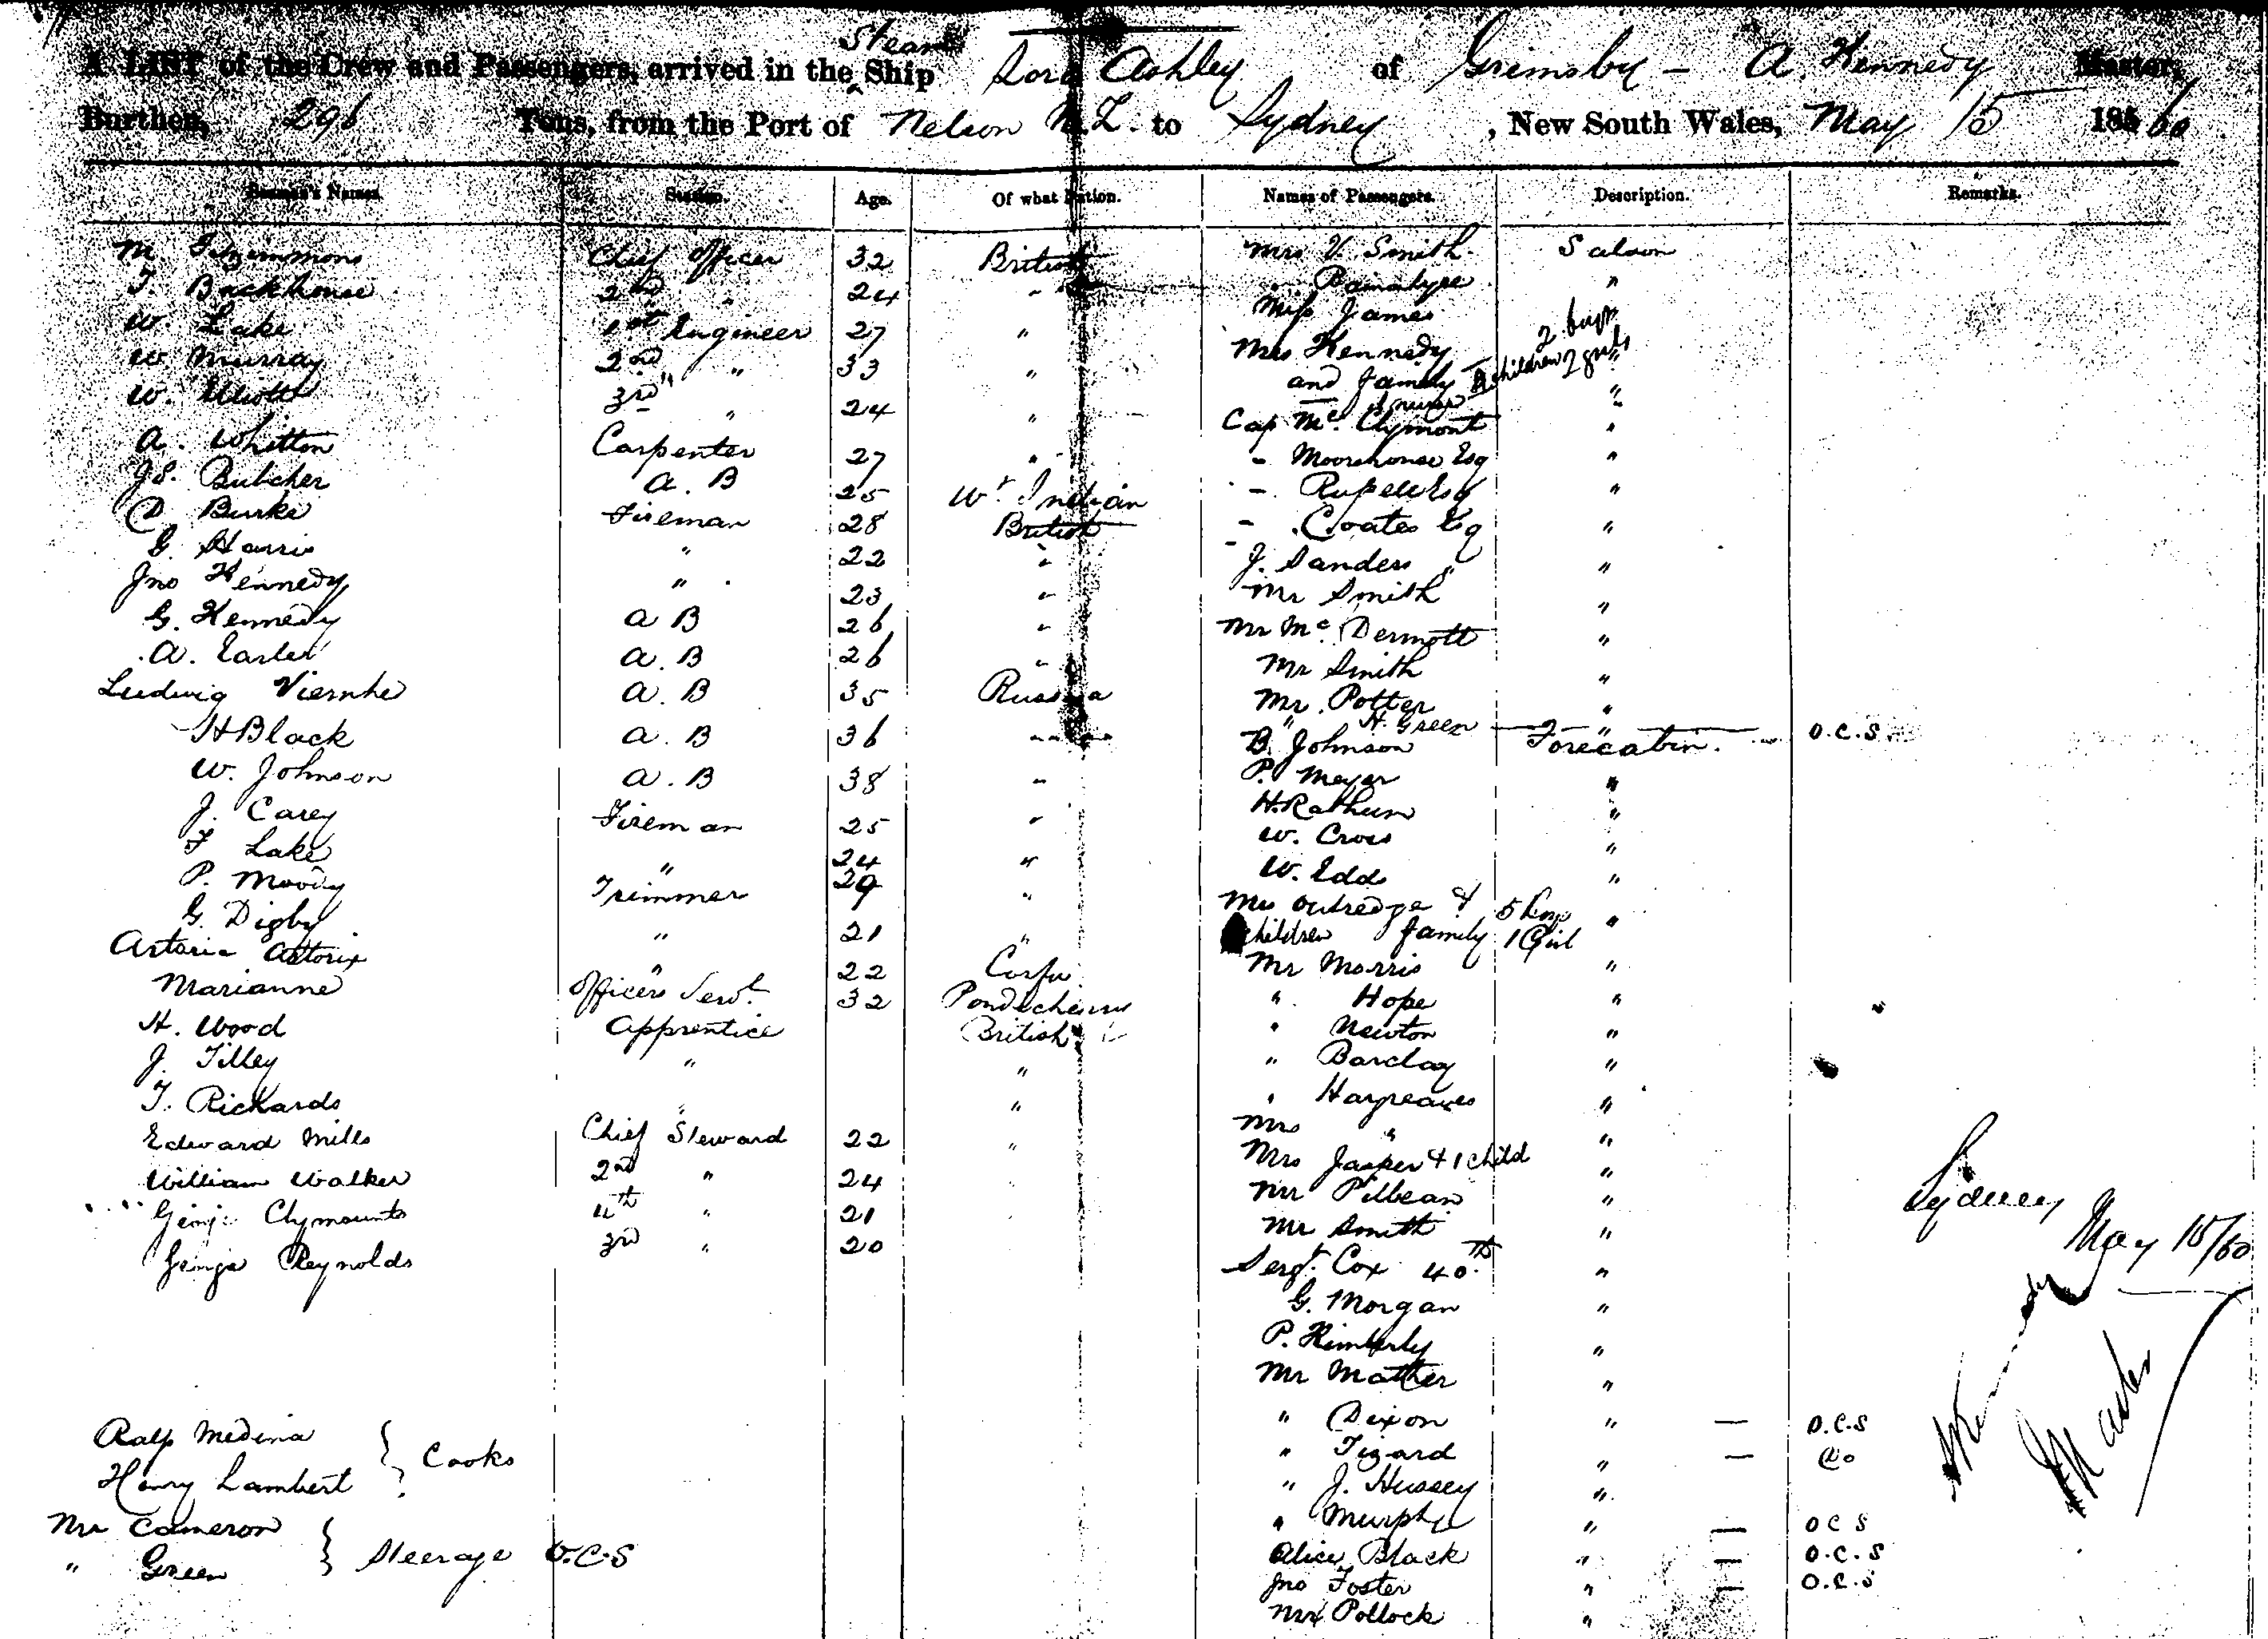 A LIST of the Crew and Passengers, arrived in the Steam Ship Lord Ashley of Grimsby - A. Kennedy Master,
Burthen, 296 Tons, from the Port of Nelson N.Z. to Sydney, New South Wales, May 15 1860
Seaman's Names. Station. Age. Of what Nation. Names of Passengers. Description. Remarks.
M. Fitzsimmons Chief Officer 32 British Mrs V. Smith Saloon
T. Backhouse 2nd " 24 " " "
W. Lake 1st Engineer 27 " Miss James
W. Murray 2nd " 33 " Mrs Kennedy 2 boys
W. Elliott 3rd " 24 " and family children 2 girls "
nurse "
A. Whitton Carpenter 27 " Cap Mc. Clymont "
J.S. Butcher A. B 25 Wt Indian - Moorehouse Esq "
D Burke Fireman 28 British - Russell Esq "
G. Harris " 22 " - Coates Esq "
Jno Kennedy " 23 " J. Sanders " "
G. Kennedy A B 26 " Mr Smith "
A. Earle A. B 26 " Mr Mc. Dermott "
Ludwig Viernke A. B 35 Russia Mr Smith "
H Black A. B 36 " Mr. Potter "
" H. Green "
W. Johnson A. B 38 " B. Johnson Forecabin. O.C.S.
J. Carey Fireman 25 " P. Meyer "
F Lake " 24 " H. Rathun "
P. Moody Trimmer 29 " W. Cross "
G. Digby " 21 " W. Edds "
Mrs Outredge & 5 boys "
children family 1 Girl
Astoria Astorix " 22 Corfu Mr Morris "
Marianne Officers Servt. 32 Pondicherry " Hope "
H. Wood Apprentice British " Newton "
J. Tilley " " " Barclay "
T. Rickards " " " Hargreaves "
Edward Mills Chief Steward 22 " Mrs " "
William Walker 2nd " 24 Mrs Jasper & 1 child "
George Clymounts 4th " 21 Mr Pilbeam "
George Reynolds 3rd " 20 Mr Smith "
Sergt. Cox 40.th "
G. Morgan "
P. Kimberly "
Mr Mather "
Ralp Medina " Dixon " - O.C.S
Henry Lambert } Cooks " Tizard " - Do
" J. Hussey "
Mr Cameron " Murphy " - O C S
" Green } Steerage O.C.S Alice Black " - O.C.S
Jno Foster " - O.C.S
Mr Pollock "
Sydney
May 15/60
A Kennedy
Master